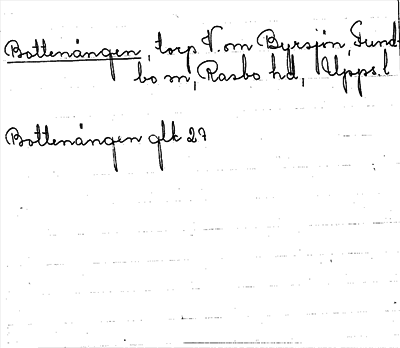 Bottenången, torp V. om Byrsjön, Fund-
bo sn, Rasbo hd, Upps. l
Bottenången glk 27